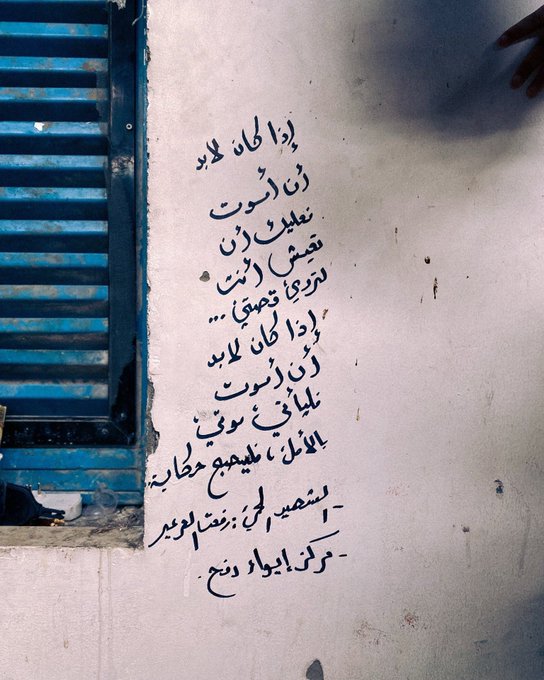 إذا كان لابد
أن أموت
فعليك أن
تعيش أنت
لتروي قصتي ...
إذا كان لابد
أن أموت
فليأتي موتي
بالأمل، فليصبح حكاية
- الشهيد الحي: رفعت العرعير
- مركز إيواء رفح.